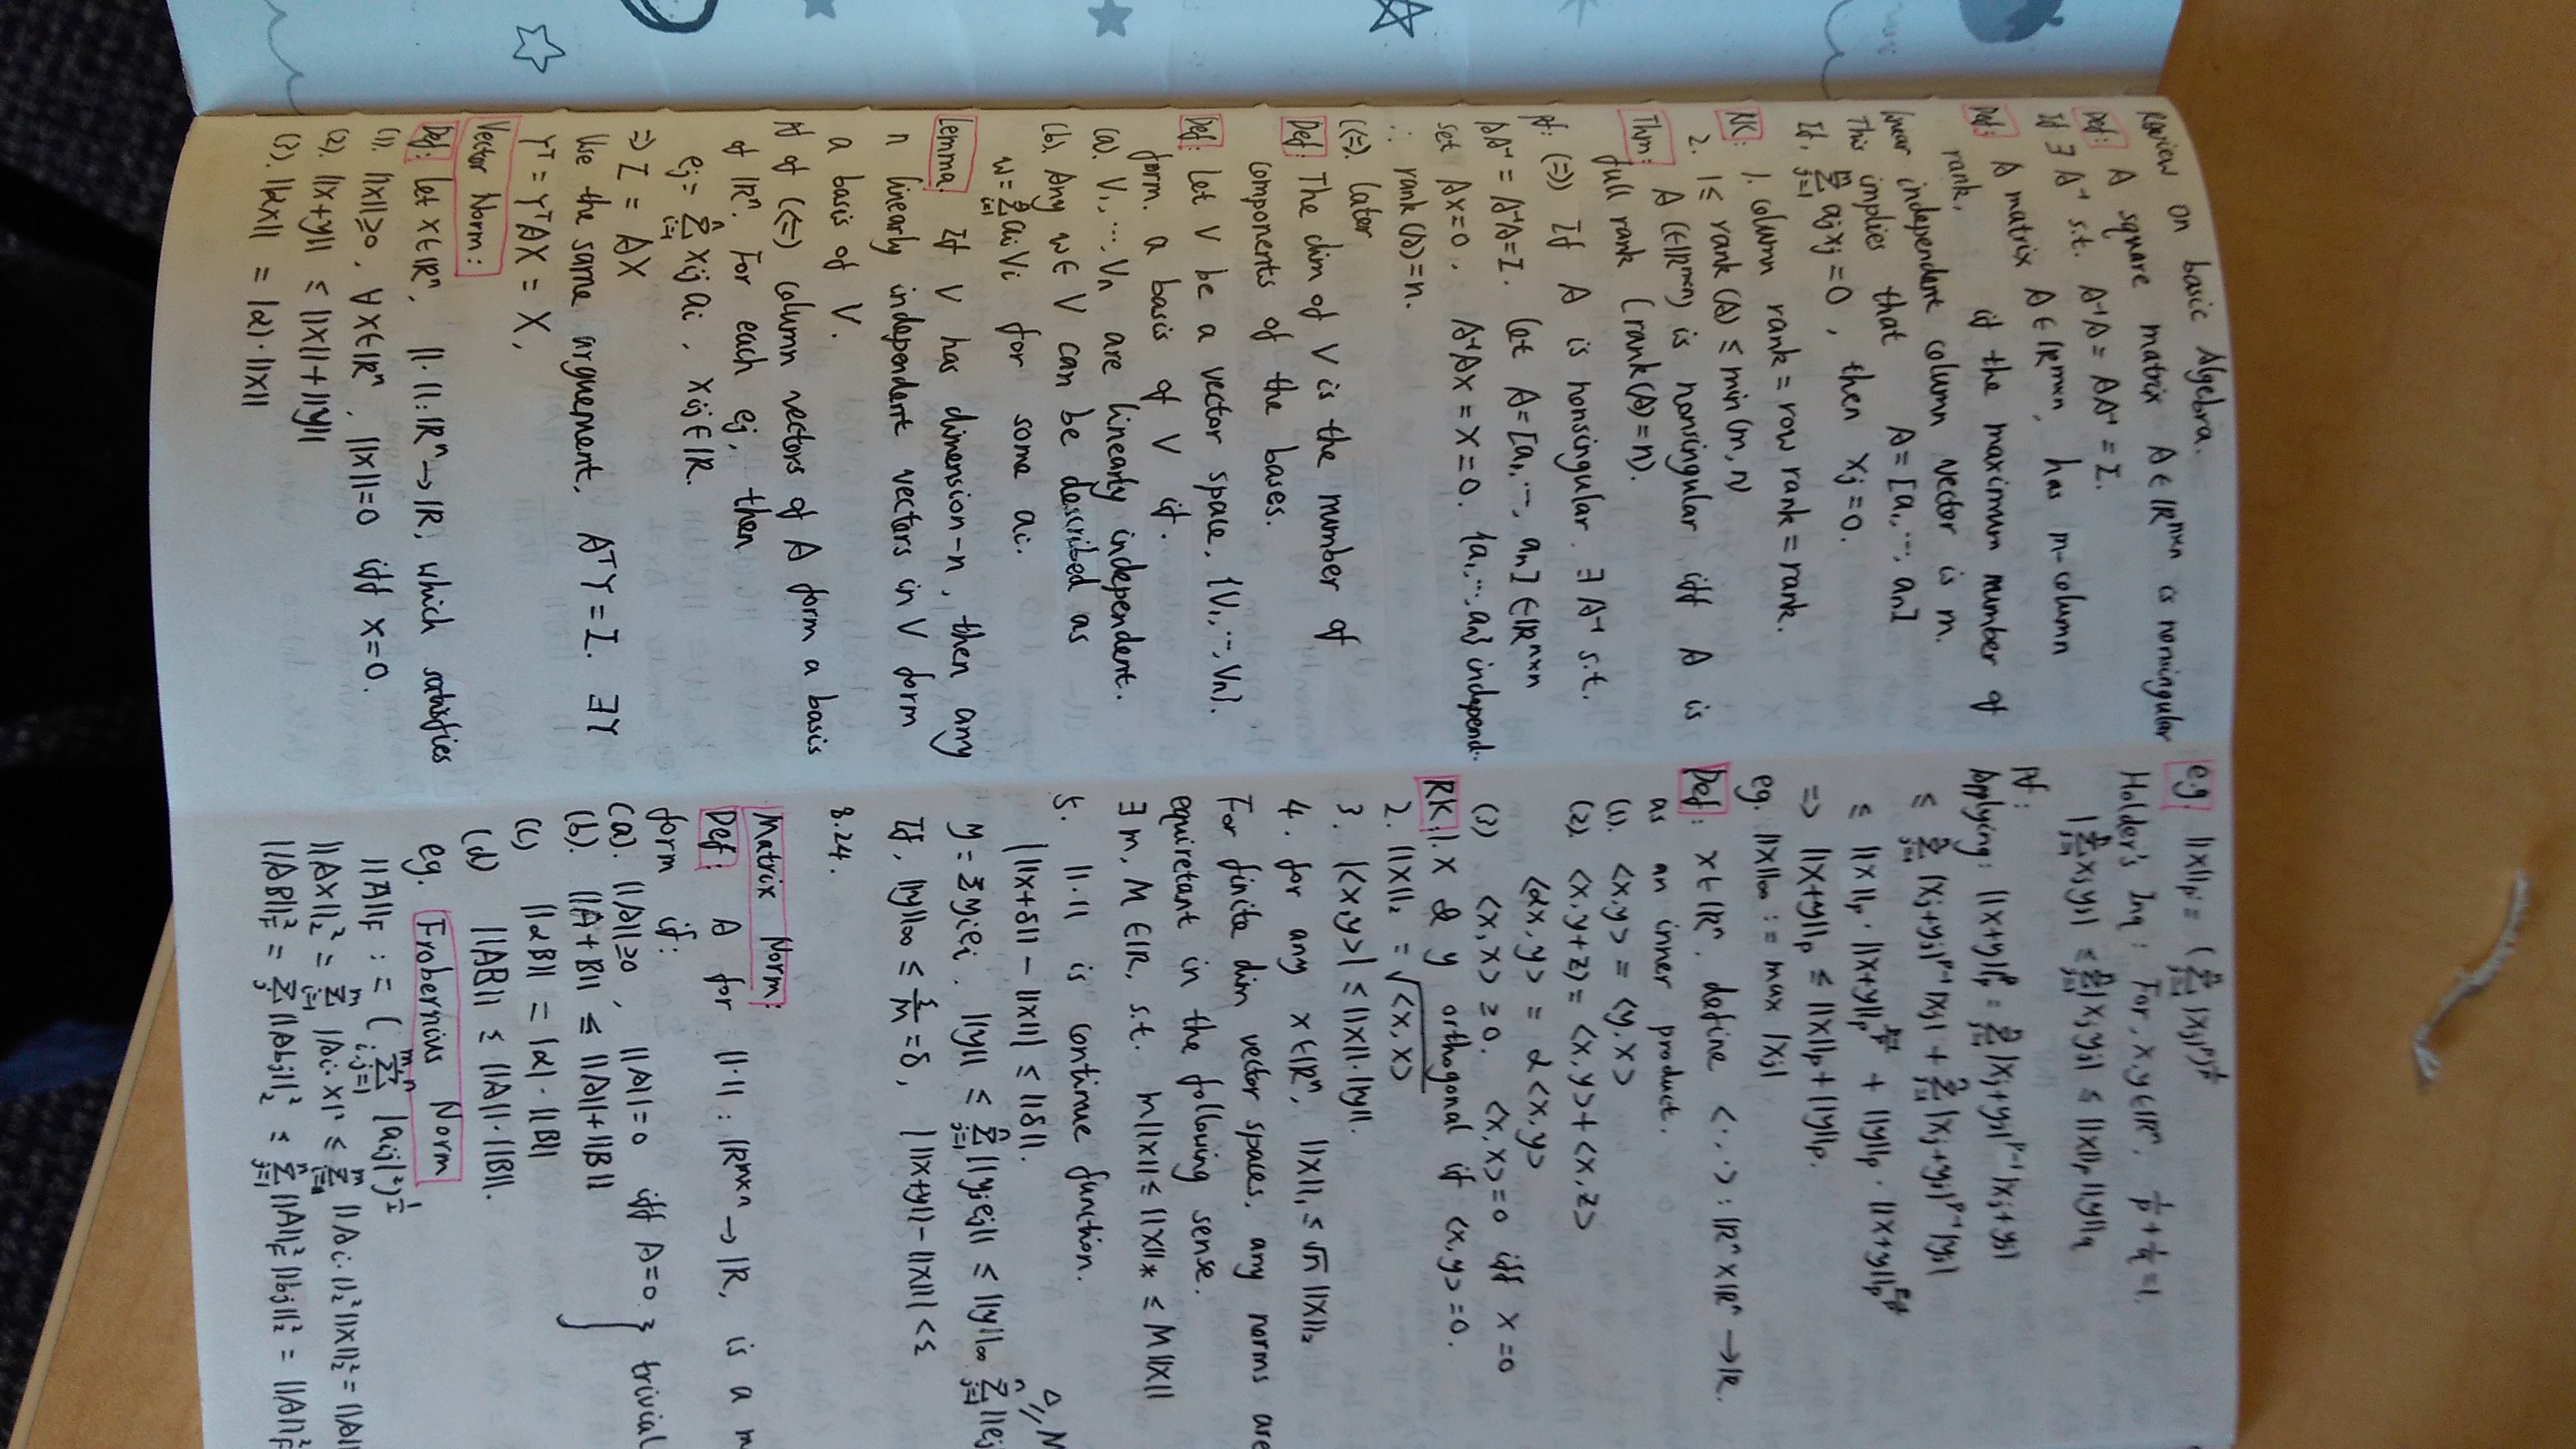 Review on basic Algebra.
Def: A square matrix A ∈ ℝⁿˣⁿ is nonsingular
If ∃ A⁻¹ s.t. A⁻¹A = AA⁻¹ = I.
Def: A matrix A ∈ ℝᵐˣⁿ, has m-column
rank, if the maximum number of
linear independent column vector is m.
This implies that A = [a₁, ⋯, aₙ]
If, Σⱼ₌₁ᵐ aⱼxⱼ = 0, then xⱼ = 0.
RK: 1. column rank = row rank = rank.
2. 1 ≤ rank (A) ≤ min (m, n)
Thm: A (∈ℝᵐˣⁿ) is nonsingular iff A is
full rank (rank(A) = n).
Pf: (⇒) If A is nonsingular. ∃ A⁻¹ s.t.
AA⁻¹ = A⁻¹A = I. Let A = [a₁, ⋯, aₙ] ∈ ℝⁿˣⁿ
set Ax = 0. A⁻¹Ax = x = 0. {a₁, ⋯, aₙ} independ.
∴ rank(A) = n.
(⇐). Later
Def: The dim of V is the number of
components of the bases.
Def: Let V be a vector space, {V₁, ⋯, Vₙ}.
form a basis of V if.
(a). V₁, ⋯, Vₙ are linearly independent.
(b). Any w ∈ V can be described as
w = Σᵢ₌₁ⁿ aᵢVᵢ for some aᵢ.
Lemma: If V has dimension-n, then any
n linearly independent vectors in V form
a basis of V.
Pf of (⇐) column vectors of A form a basis
of ℝⁿ. For each eⱼ, then
eⱼ = Σᵢ₌₁ⁿ xᵢⱼ aᵢ, xᵢⱼ ∈ ℝ.
⇒ I = AX
Use the same arguement, AᵀY = I. ∃Y
Yᵀ = YᵀAX = X,
Vector Norm:
Def: Let x ∈ ℝⁿ, ‖·‖: ℝⁿ → ℝ, which satisfies
(1). ‖x‖ ≥ 0, ∀x ∈ ℝⁿ, ‖x‖ = 0 iff x = 0.
(2). ‖x+y‖ ≤ ‖x‖ + ‖y‖
(3). ‖αx‖ = |α|·‖x‖
e.g. ‖x‖ₚ = (Σⱼ₌₁ⁿ |xⱼ|ᵖ)^(1/p)
Holder's Inq: For, x, y ∈ ℝⁿ, 1/p + 1/q = 1.
|Σⱼ₌₁ⁿ xⱼyⱼ| ≤ Σⱼ₌₁ⁿ |xⱼyⱼ| ≤ ‖x‖ₚ‖y‖q
Pf:
Applying: ‖x+y‖ₚᵖ = Σⱼ₌₁ⁿ |xⱼ+yⱼ|ᵖ⁻¹ |xⱼ+yⱼ|
≤ Σⱼ₌₁ⁿ |xⱼ+yⱼ|ᵖ⁻¹|xⱼ| + Σⱼ₌₁ⁿ |xⱼ+yⱼ|ᵖ⁻¹|yⱼ|
≤ ‖x‖ₚ · ‖x+y‖ₚ + ‖y‖ₚ · ‖x+y‖ₚ
⇒ ‖x+y‖ₚ ≤ ‖x‖ₚ + ‖y‖ₚ.
eg. ‖x‖∞ := max |xⱼ|
Def: x ∈ ℝⁿ. define <·,·>: ℝⁿ × ℝⁿ → ℝ.
as an inner product.
(1). <x,y> = <y,x>
(2). <x, y+z> = <x,y> + <x,z>
<αx, y> = α<x,y>
(3) <x,x> ≥ 0. <x,x> = 0 iff x = 0
RK: 1. x & y orthogonal if <x,y> = 0.
2. ‖x‖₂ = √<x,x>
3. |<x,y>| ≤ ‖x‖·‖y‖.
4. for any x ∈ ℝⁿ, ‖x‖₁ ≤ √n ‖x‖₂
For finite dim vector spaces, any norms are
equiretant in the following sense.
∃ m, M ∈ ℝ, s.t. m‖x‖ ≤ ‖x‖* ≤ M‖x‖
5. ‖·‖ is continue function.
|‖x+δ‖ − ‖x‖| ≤ ‖δ‖.
y = Σyᵢeᵢ. ‖y‖ ≤ Σⱼ₌₁ⁿ ‖yⱼeⱼ‖ ≤ ‖y‖∞ Σⱼ₌₁ⁿ ‖eⱼ
If, ‖y‖∞ ≤ ε/M = δ, |‖x+y‖ − ‖x‖| < ε
8.24.
Matrix Norm:
Def: A for ‖·‖: ℝᵐˣⁿ → ℝ, is a m
form if:
(a). ‖A‖ ≥ 0, ‖A‖ = 0 iff A = 0 } trivial
(b). ‖A+B‖ ≤ ‖A‖ + ‖B‖
(c) ‖αB‖ = |α|·‖B‖
(d) ‖AB‖ ≤ ‖A‖·‖B‖.
eg. Frobernius Norm
‖A‖F := (Σᵢ,ⱼ₌₁ᵐ,ⁿ |aᵢⱼ|²)^(1/2)
‖Ax‖₂² = Σᵢ₌₁ᵐ |Aᵢ:x|² ≤ Σᵢ₌₁ᵐ ‖Aᵢ:‖₂²‖x‖₂² = ‖A‖
‖AB‖F² = Σⱼ ‖Abⱼ‖₂² ≤ Σⱼ₌₁ⁿ ‖A‖F²‖bⱼ‖₂² = ‖A‖F²